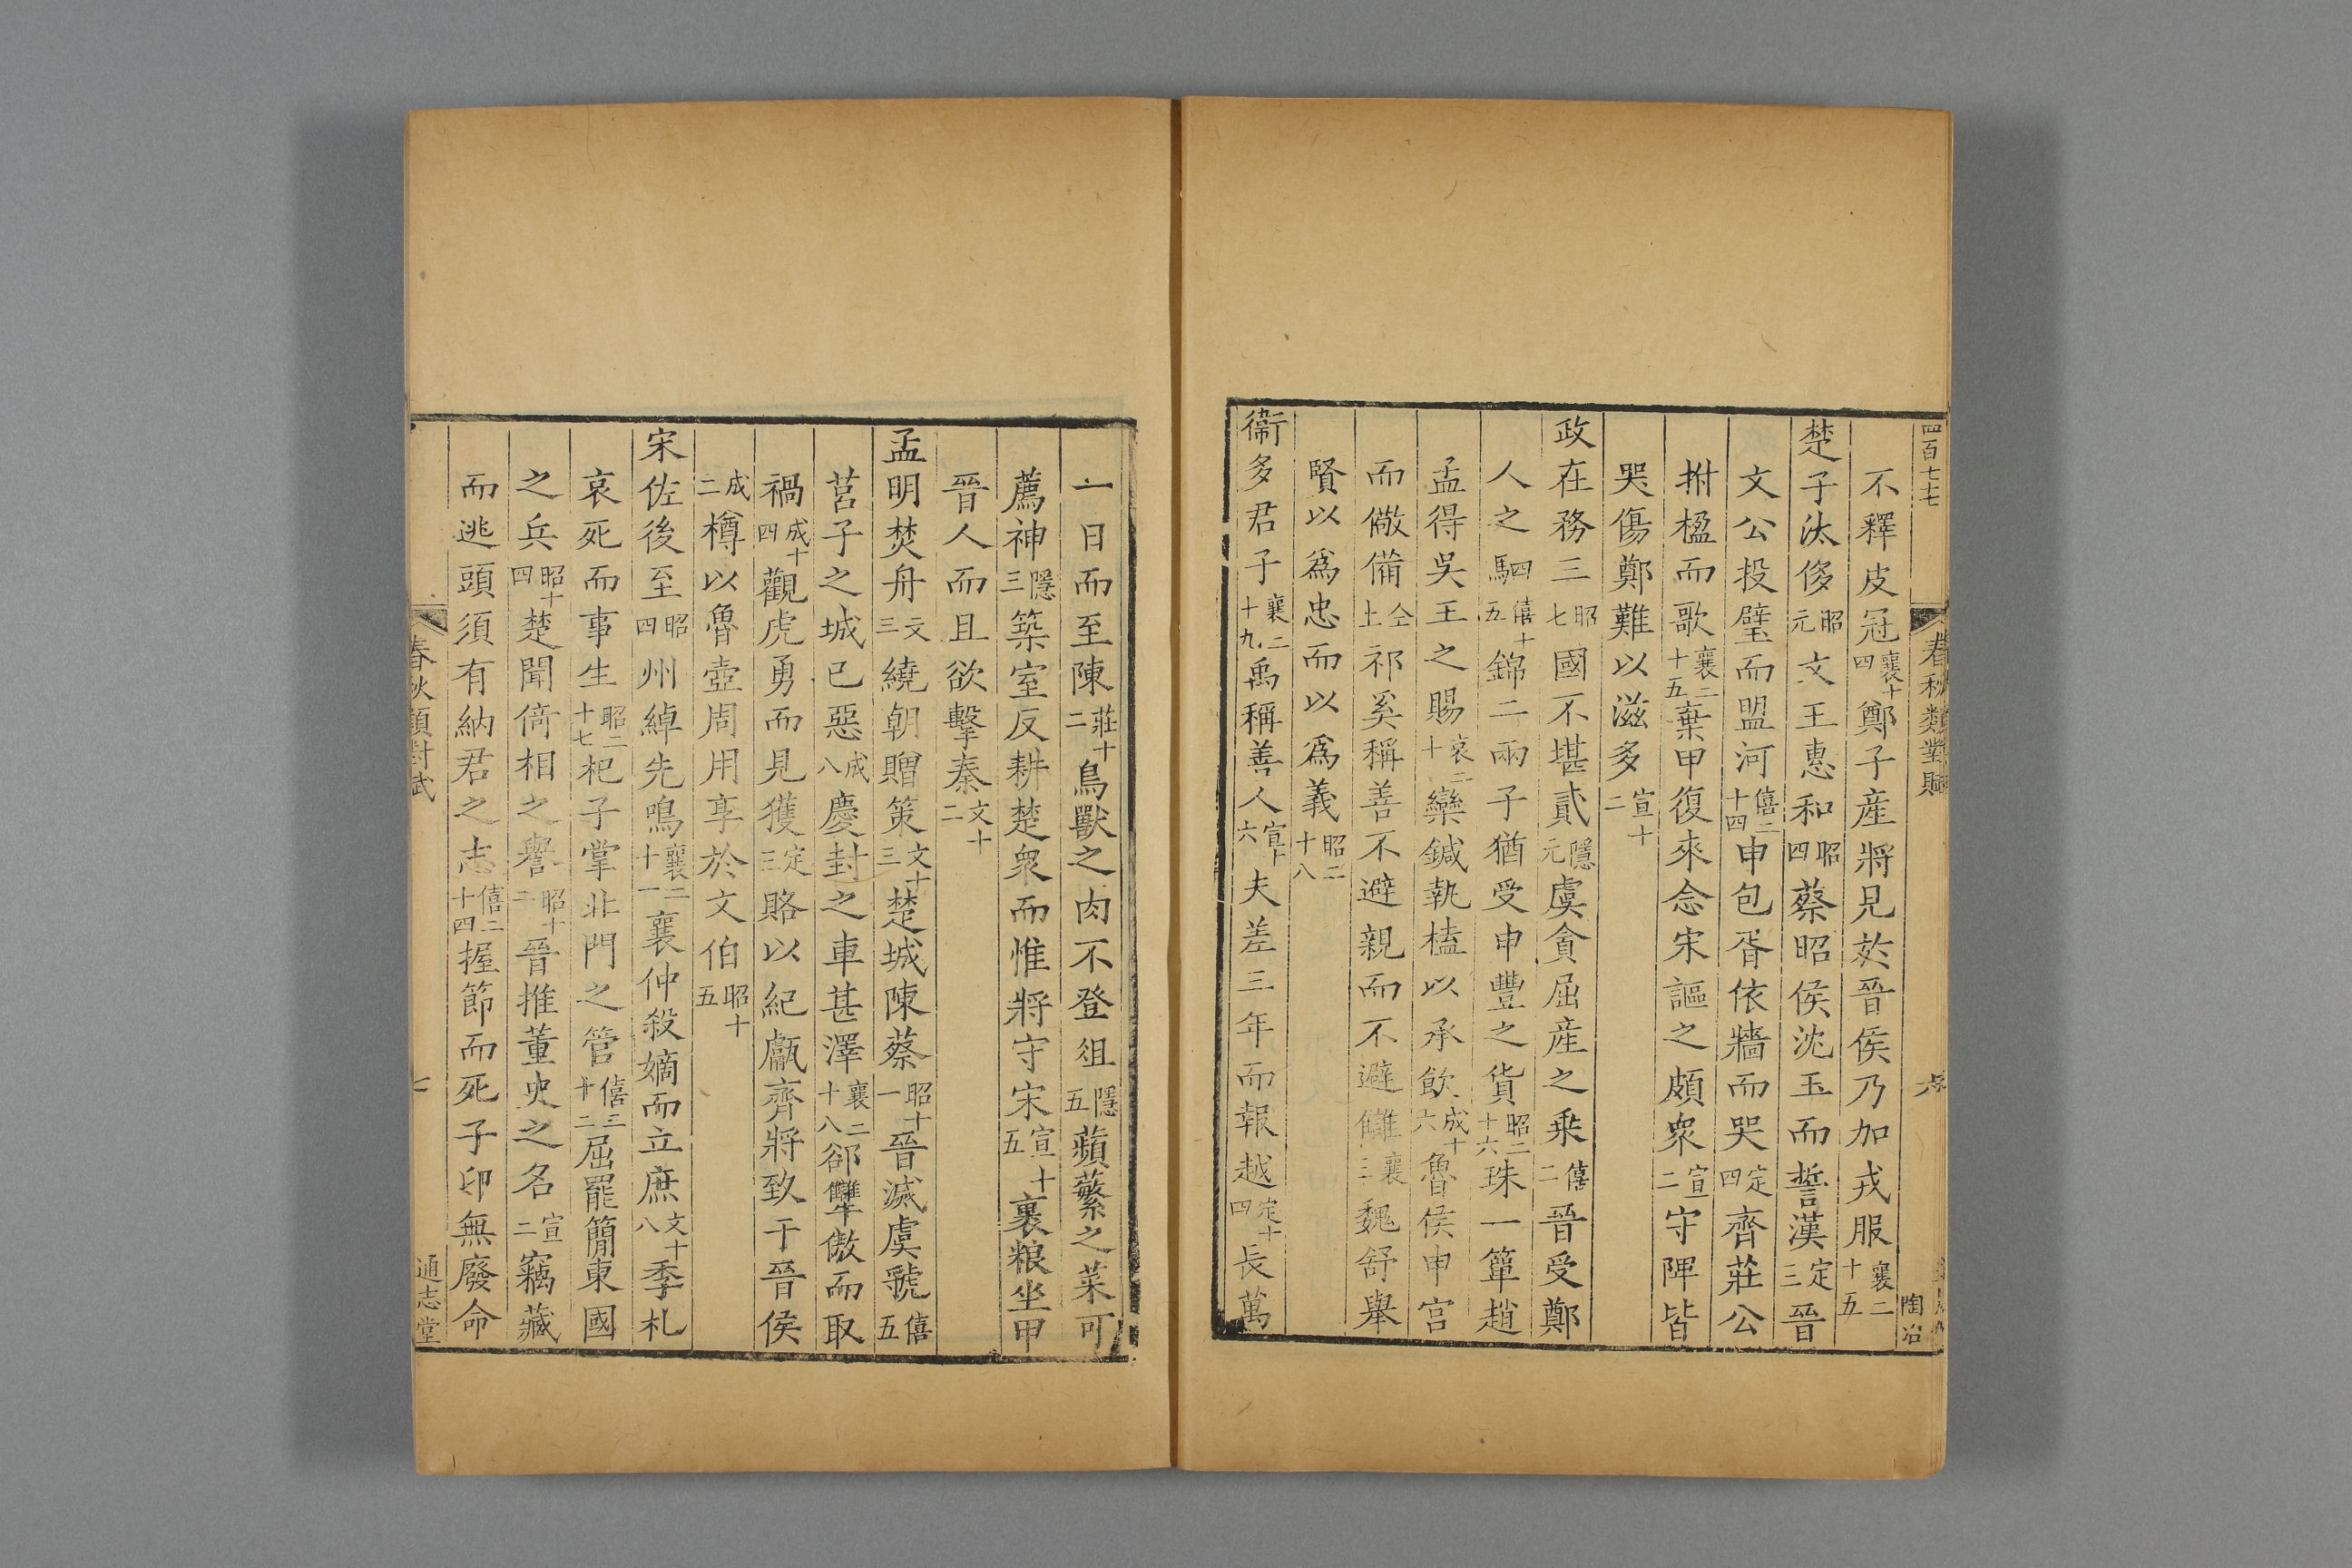 四百七十七
春秋類對賦
六
陶冶
不釋皮冠襄十四鄭子產將見於晉侯乃加戎服襄二十五
楚子汰侈昭元文王惠和昭四蔡昭侯沈玉而誓漢定三晉
文公投璧而盟河僖二十四申包胥依牆而哭定四齊莊公
拊楹而歌襄二十五棄甲復來念宋謳之頗衆宣二守陴皆
哭傷鄭難以滋多宣十二
政在務三昭七國不堪貳隱元虞貪屈產之乗僖二晉受鄭
人之駟僖十五錦二兩子猶受申豐之貨昭二十六珠一簞趙
孟得吳王之賜哀二十欒鍼執榼以承飲成十六魯侯申宫
而儆備仝上祁奚稱善不避親而不避讎襄三魏舒舉
賢以爲忠而以爲義昭二十八
衞多君子襄二十九禹稱善人宣十六夫差三年而報越定十四長萬
一日而至陳莊十二鳥獸之肉不登俎隱五蘋蘩之菜可
薦神隱三築室反耕楚衆而惟將守宋宣十五裹粮坐甲
晉人而且欲擊秦文十二
孟明焚舟文三繞朝贈策文十三楚城陳蔡昭十一晉滅虞虢僖五
莒子之城已惡成八慶封之車甚澤襄二十八郤犨傲而取
禍成十四觀虎勇而見獲定三賂以紀甗齊將致于晉侯
成二樽以魯壺周用享於文伯昭十五
宋佐後至昭四州綽先鳴襄二十一襄仲殺嫡而立庶文十八季札
哀死而事生昭二十七杞子掌北門之管僖三十二屈罷簡東國
之兵昭十四楚聞倚相之譽昭十二晉推董史之名宣二竊藏
而逃頭須有納君之志僖二十四握節而死子卬無廢命
春秋類對賦
七
通志堂